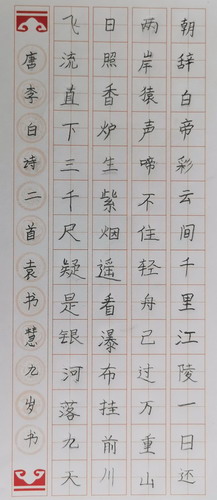 朝辞白帝彩云间千里江陵一日还
两岸猿声啼不住轻舟己过万重山
日照香炉生紫烟遥看瀑布挂前川
飞流直下三千尺疑是银河落九天
唐李白诗二首袁书慧九岁书